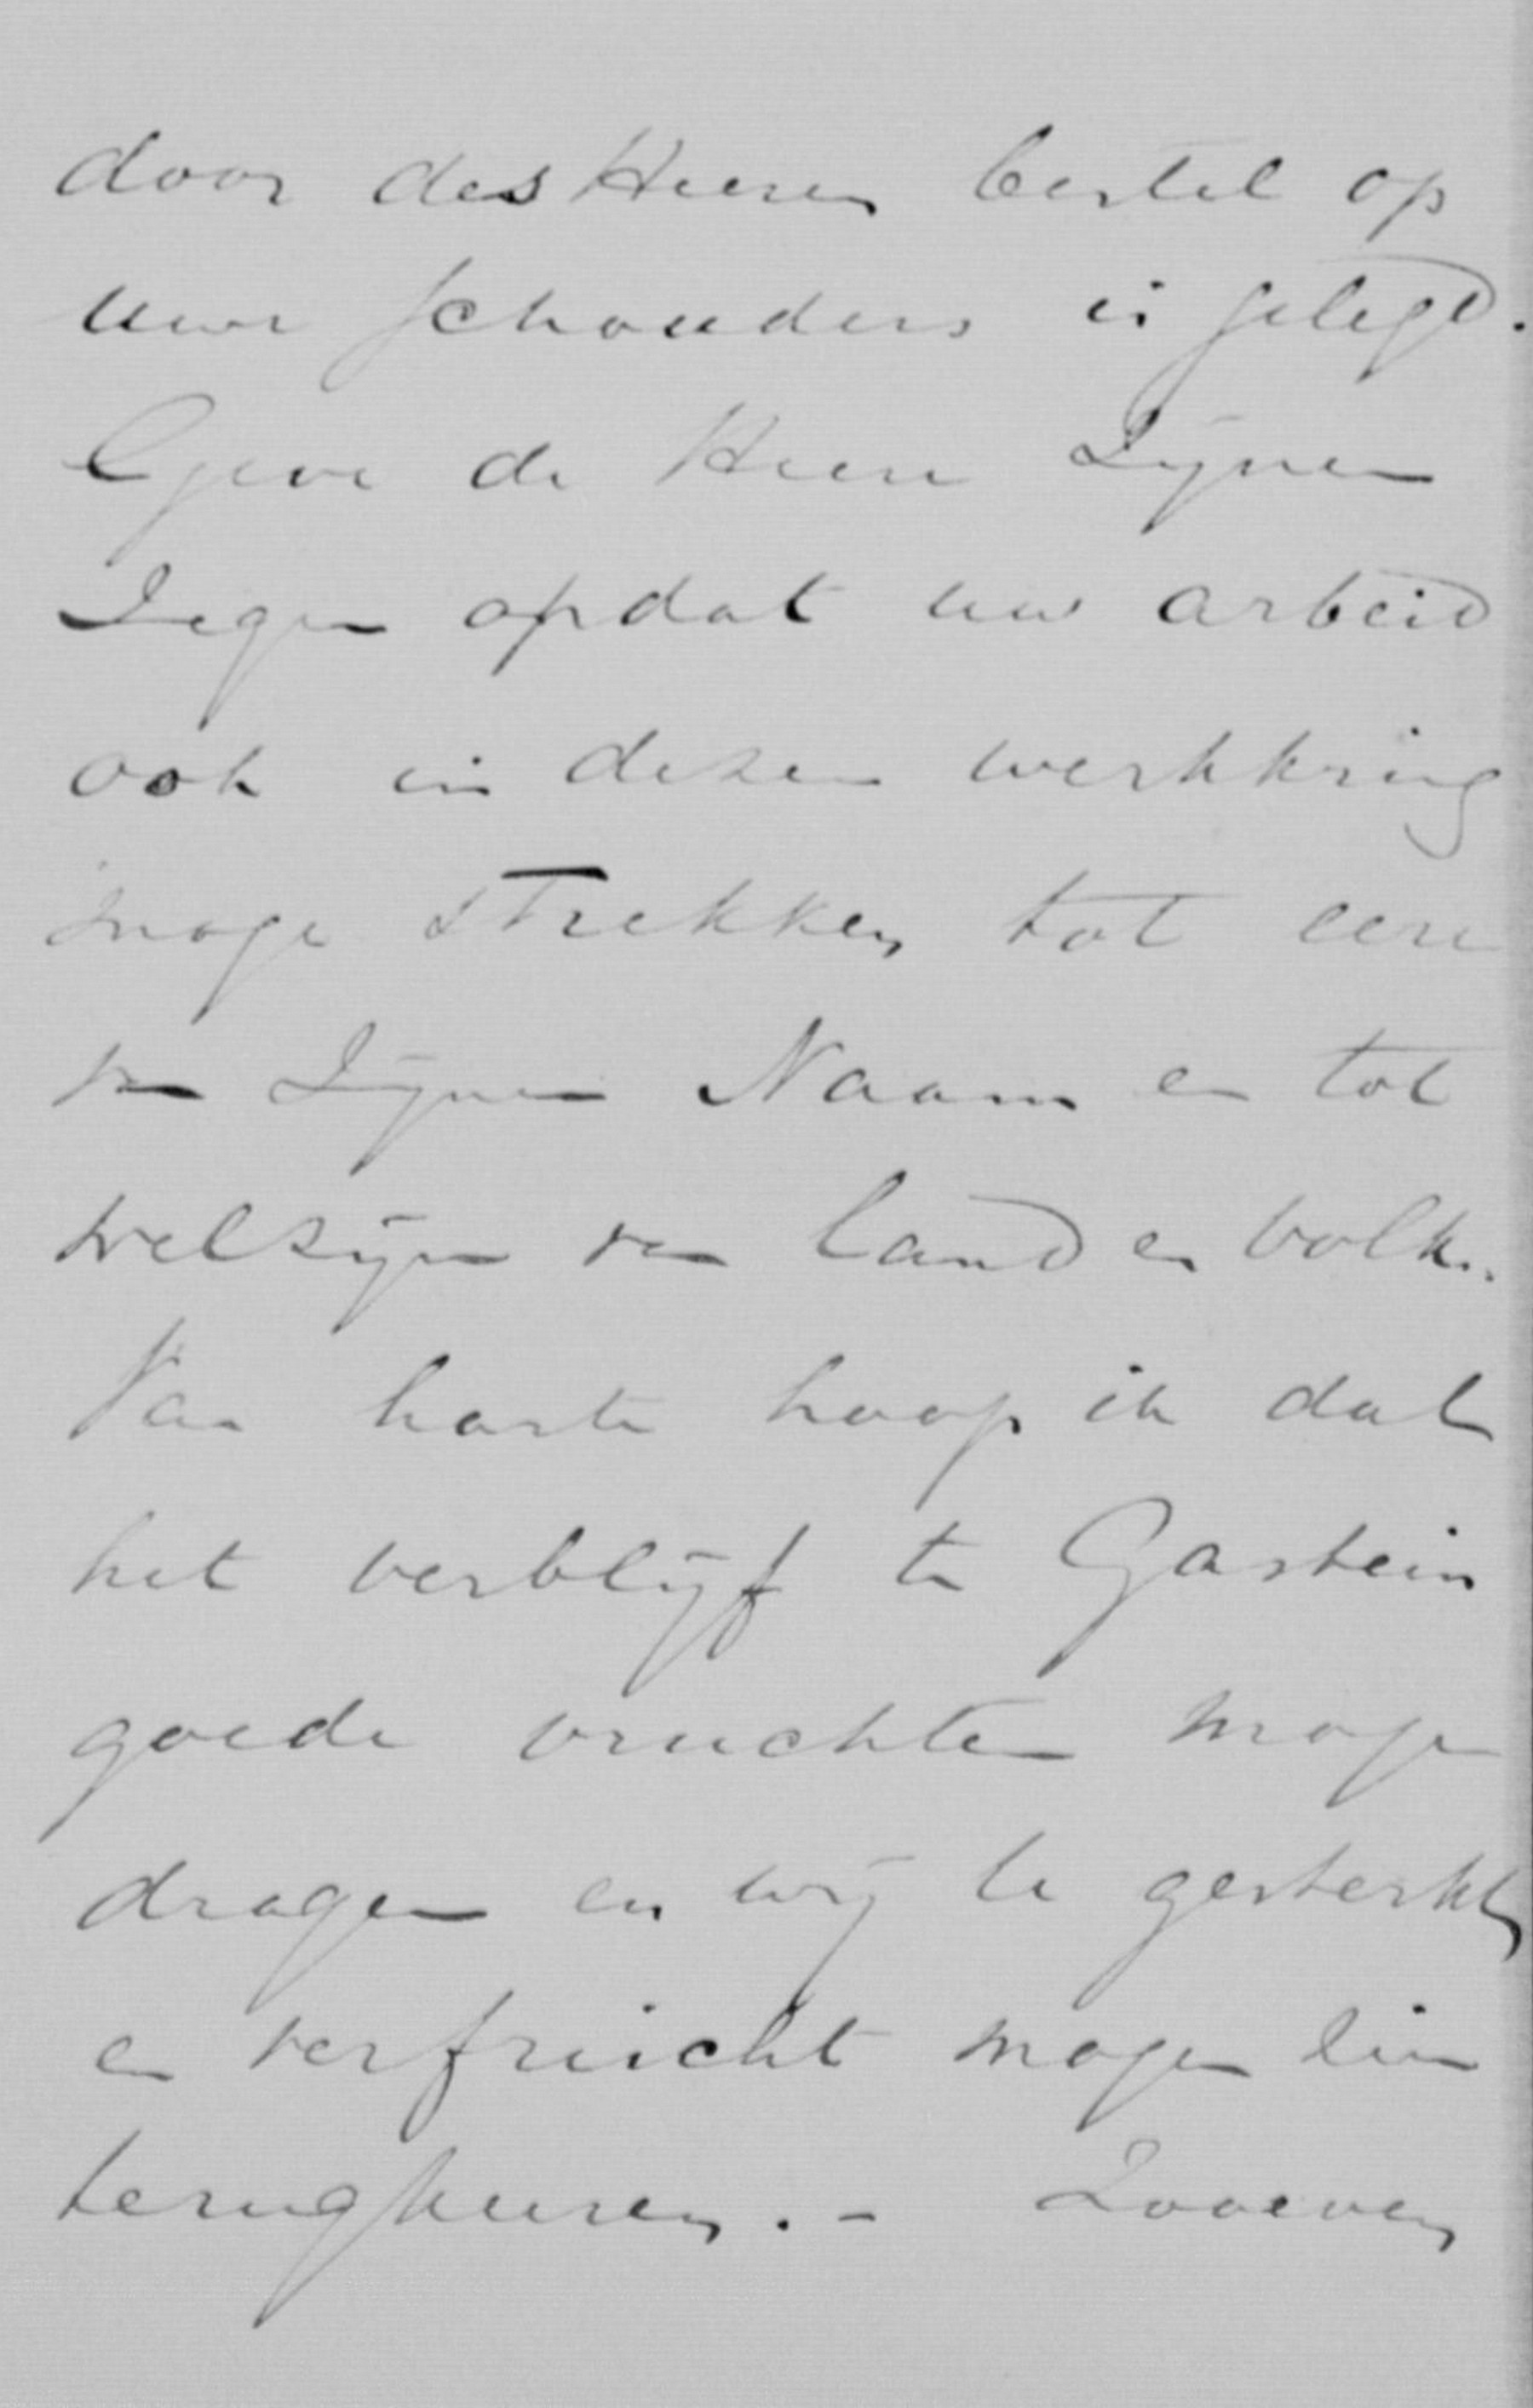 door des Heeren bestel op
uwe schouders is gelegd.
Geve de Heere Zijnen
Zegen opdat uw arbeid
ook in dezen werkkring
moge strekken tot eere
van Zijnen Naam en tot
welzijn van land en volk.
Van harte hoop ik dat
het verblijf te Gastein
goede vruchten moge
dragen en wij U gesterkt
en verfrischt mogen zien
terugkeeren. - Zooeven